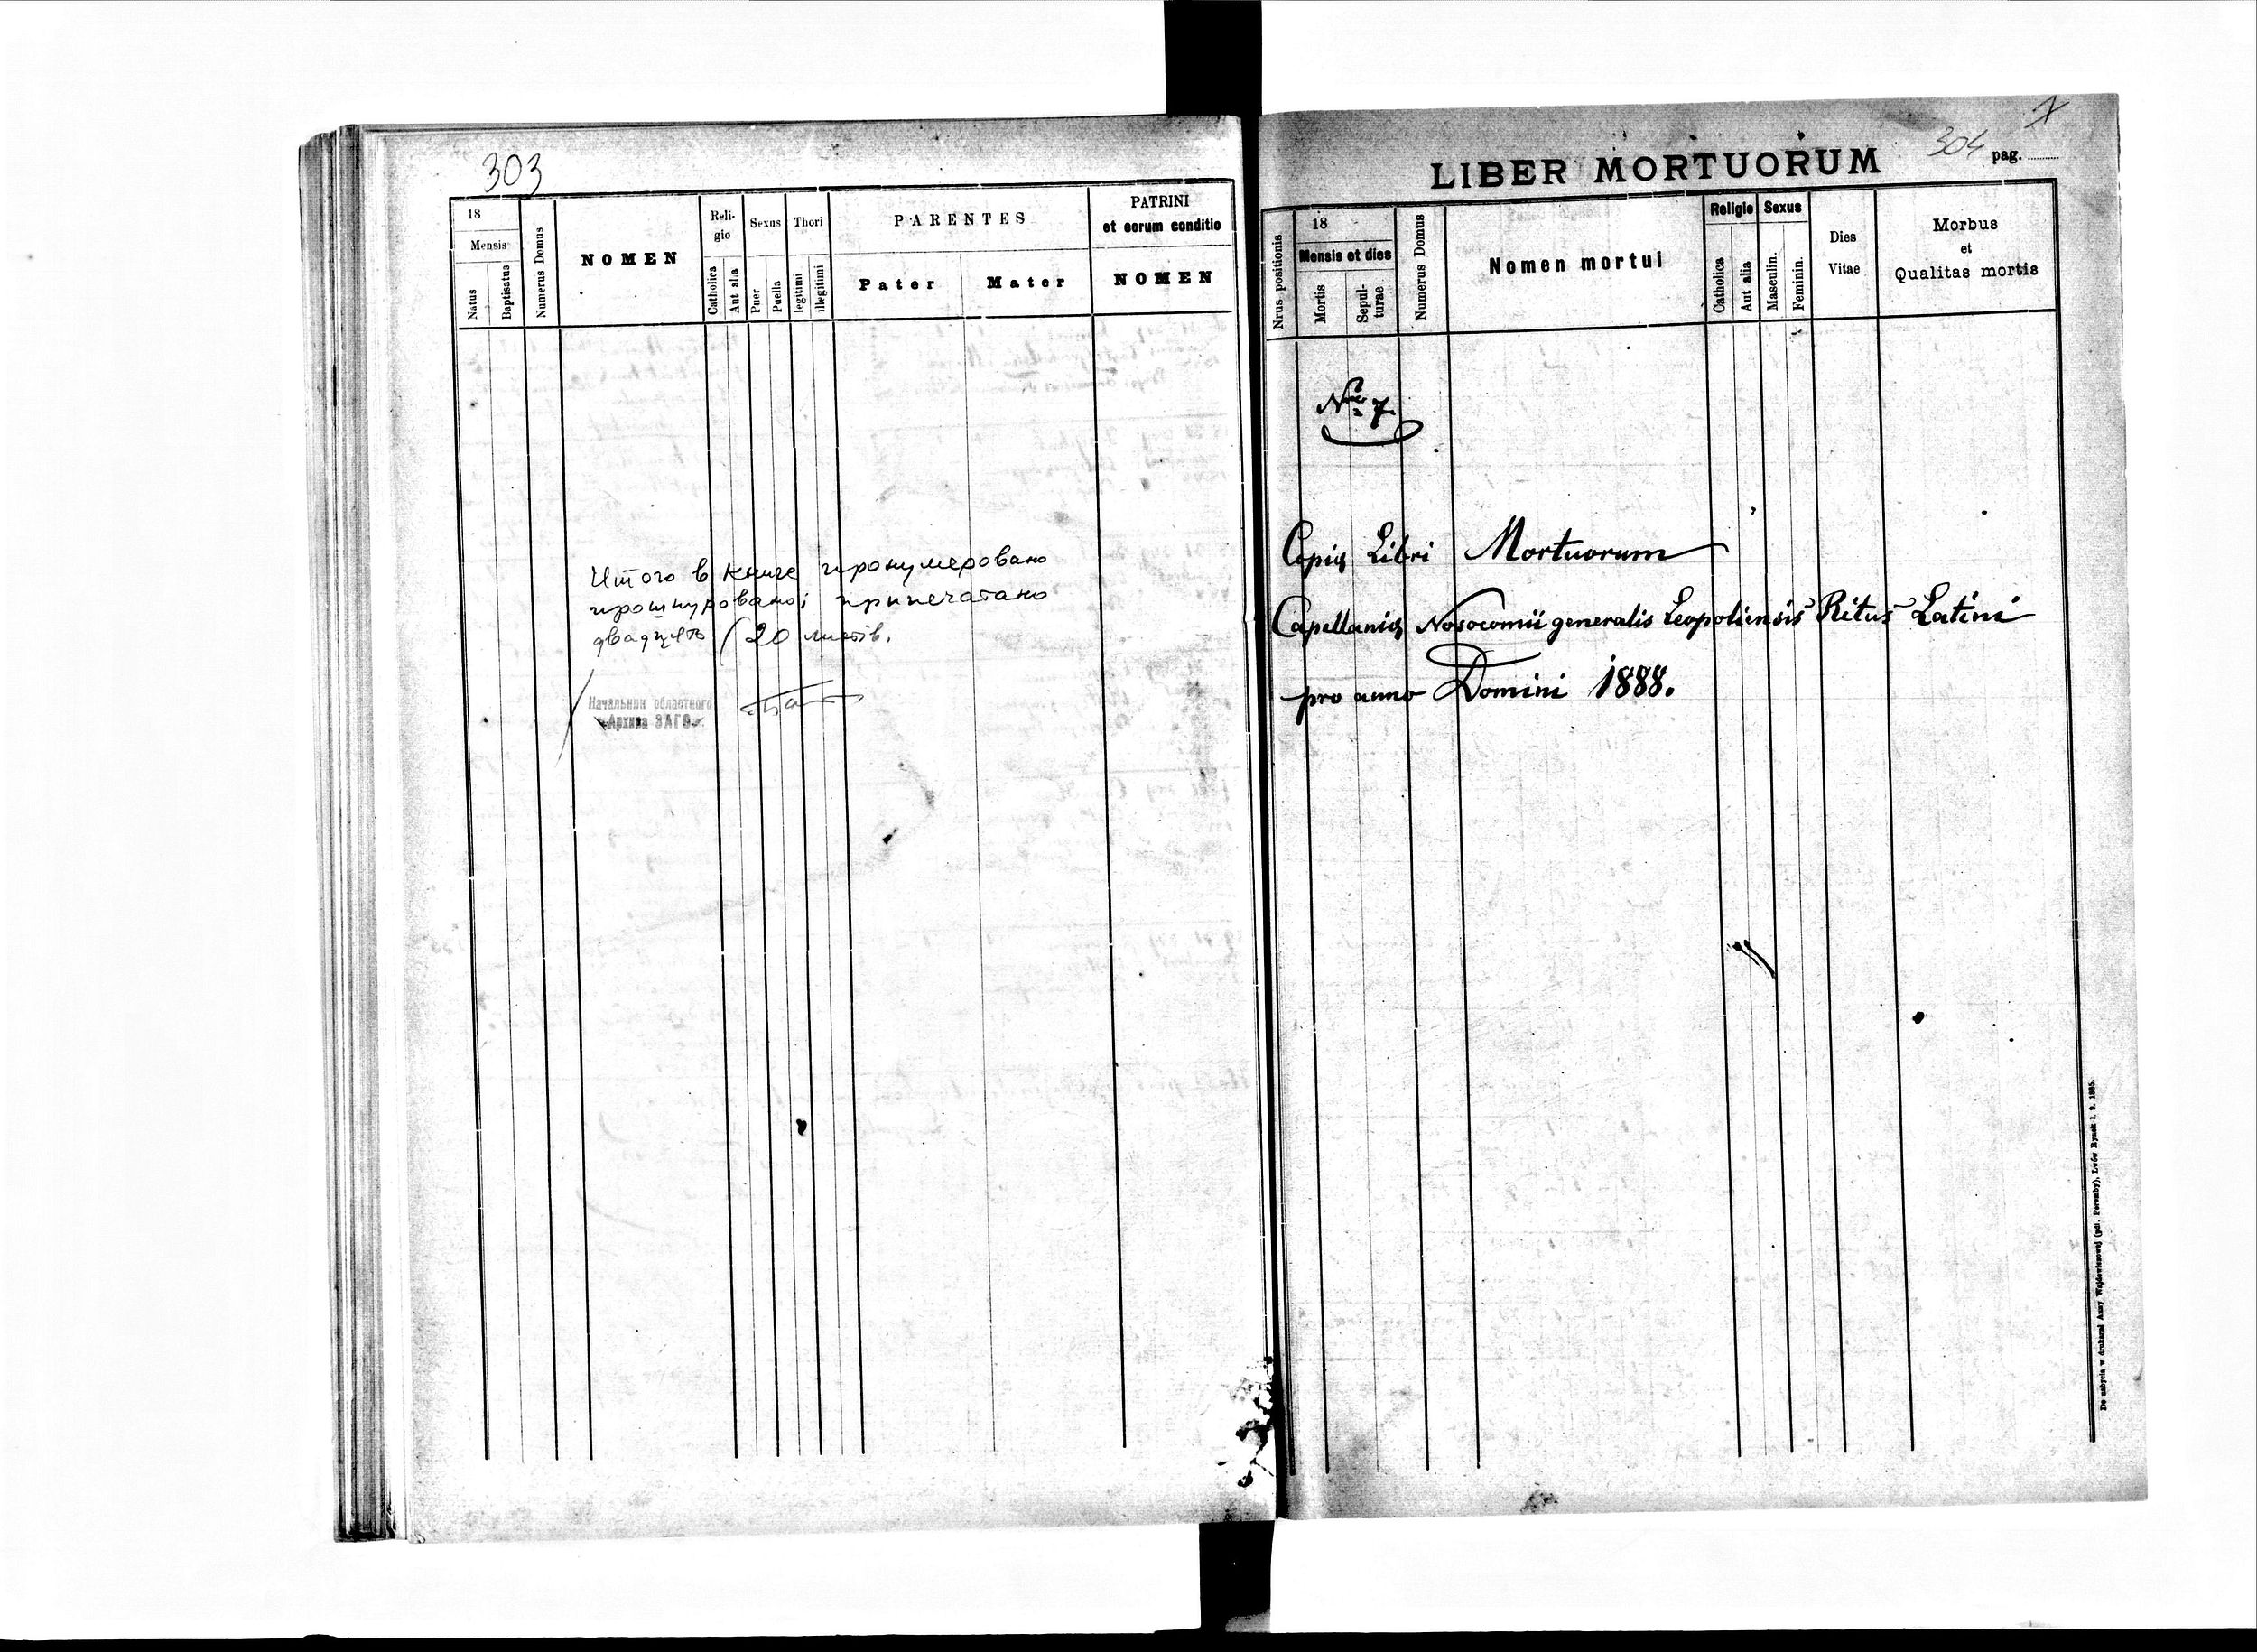 303
18
Mensis
Natus
Baptisatus
Numerus Domus
NOMEN
Reli-
gio
Catholica
Aut alia
Sexus
Puer
Puella
Thori
legitimi
illegitimi
PARENTES
Pater
Mater
PATRINI
et eorum conditio
NOMEN
Итого в книге пронумеровано
прошнуровано і припечатано
двадцять (20 листів.
Начальник областного
Архива ЗАГС
304
pag.
LIBER MORTUORUM
Nrus positionis
18
Mensis et dies
Mortis
Sepul-
turae
Numerus Domus
Nomen mortui
Religio
Catholica
Aut alia
Sexus
Masculin.
Feminin.
Dies
Vitae
Morbus
et
Qualitas mortis
Nro 7
Copia Libri Mortuorum
Capellaniae Nosocomii generalis Leopoliensis Ritus Latini
pro anno Domini 1888.
Do nabycia w drukarni Anny Wajdowiczowej (pdf. Poremby), Lwów Rynek l. 9. 1885.